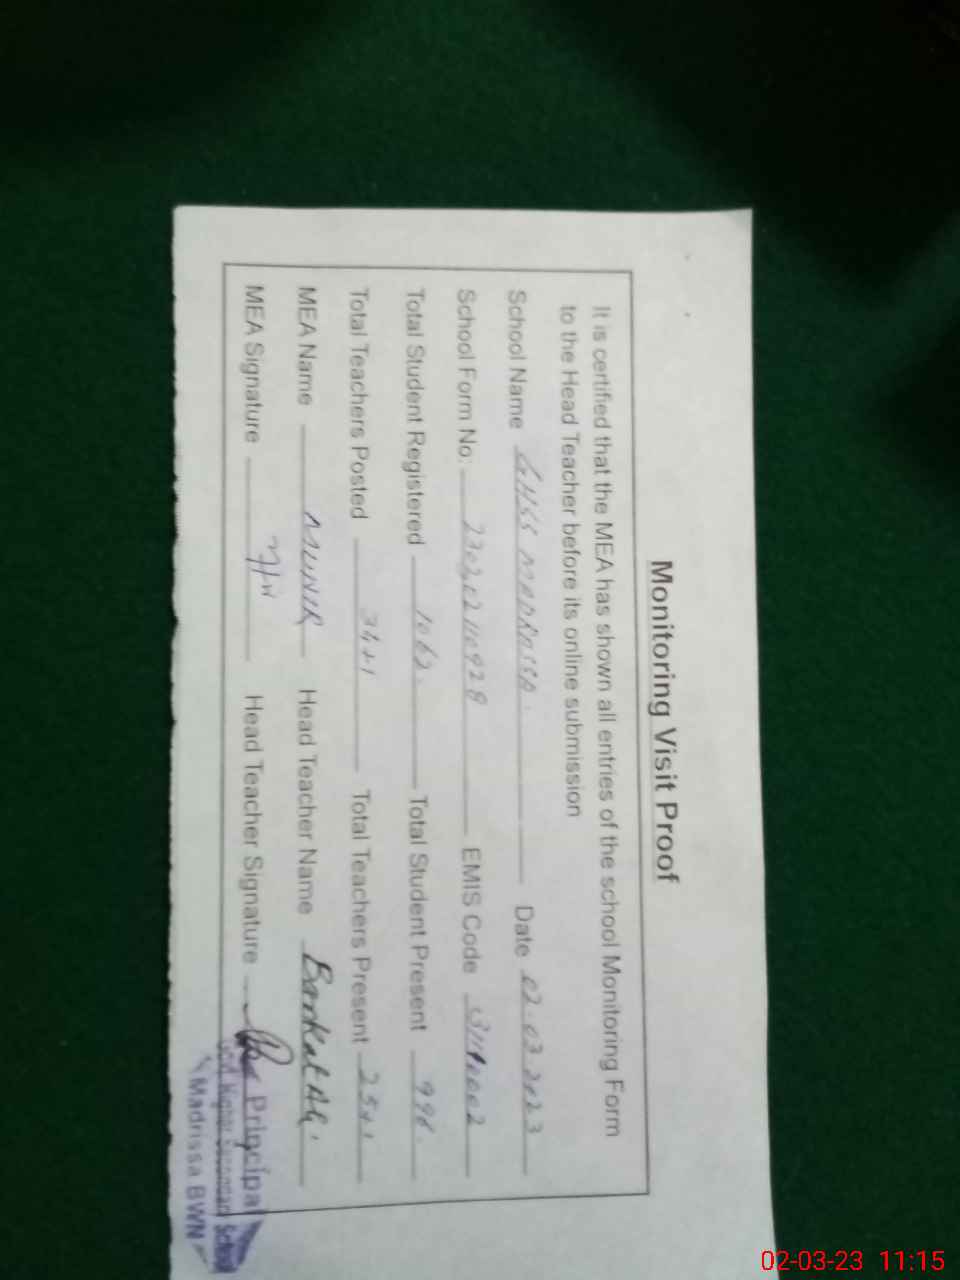 Monitoring Visit Proof
It is certified that the MEA has shown all entries of the school Monitoring Form
to the Head Teacher before its online submission
School Name GHSS MADRASSA. Date 02.03.2023
School Form No. 230302110928 EMIS Code 31110002
Total Student Registered 1062. Total Student Present 996.
Total Teachers Posted 34+1 Total Teachers Present 25+1
MEA Name MUNIR Head Teacher Name Barkat Ali.
MEA Signature Head Teacher Signature
Principal
Govt. Higher Secondary School
Madrissa BWN
02-03-23 11:15